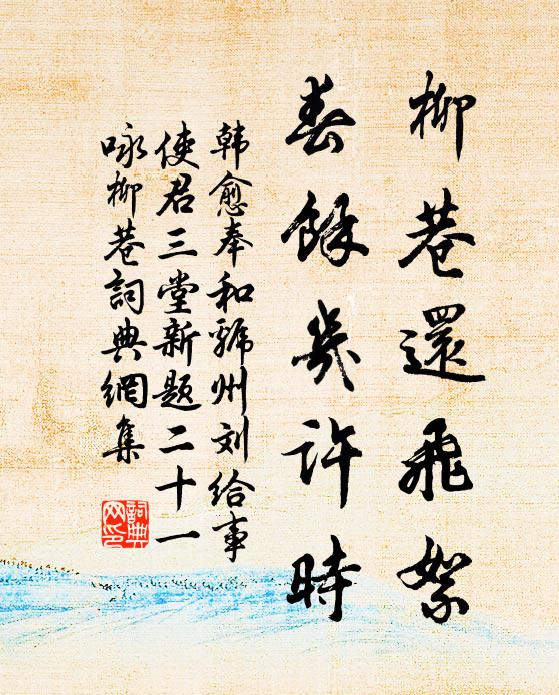 柳巷還飛絮
春餘幾許時
韩愈奉和虢州刘给事
使君三堂新题二十一
咏柳巷詞典網集
詞典
网印